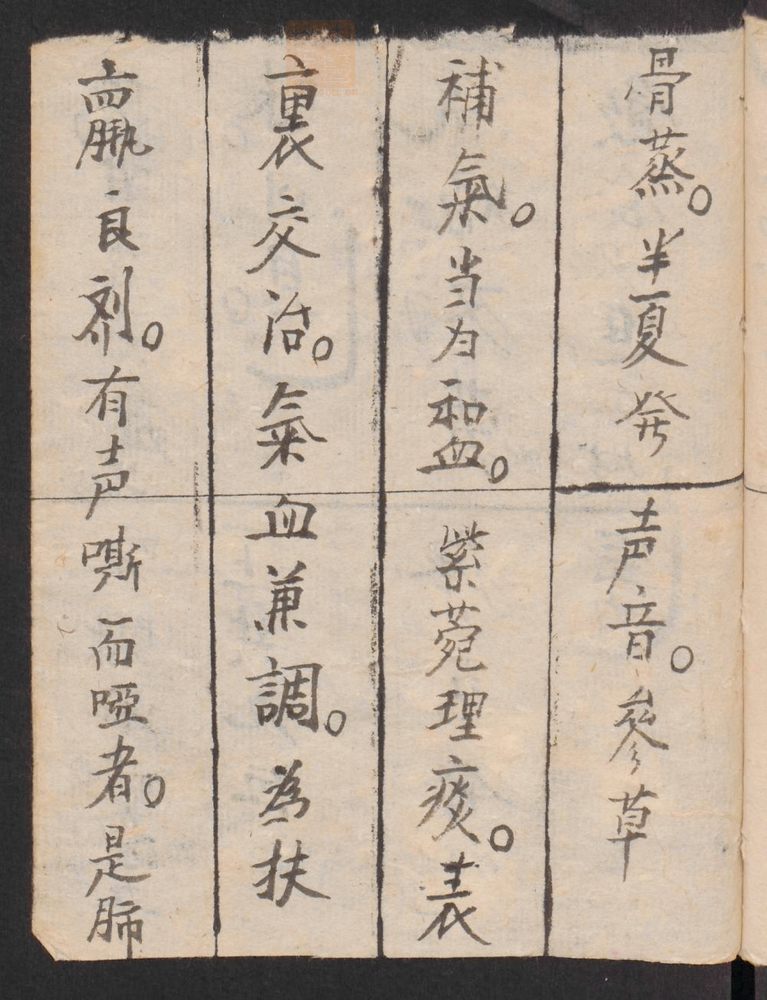 骨蒸。半夏発声音。參草
補氣。当为和血。紫菀理痰。表
裏交治。氣血兼調。為扶
羸良剂。有声嘶而啞者。是肺